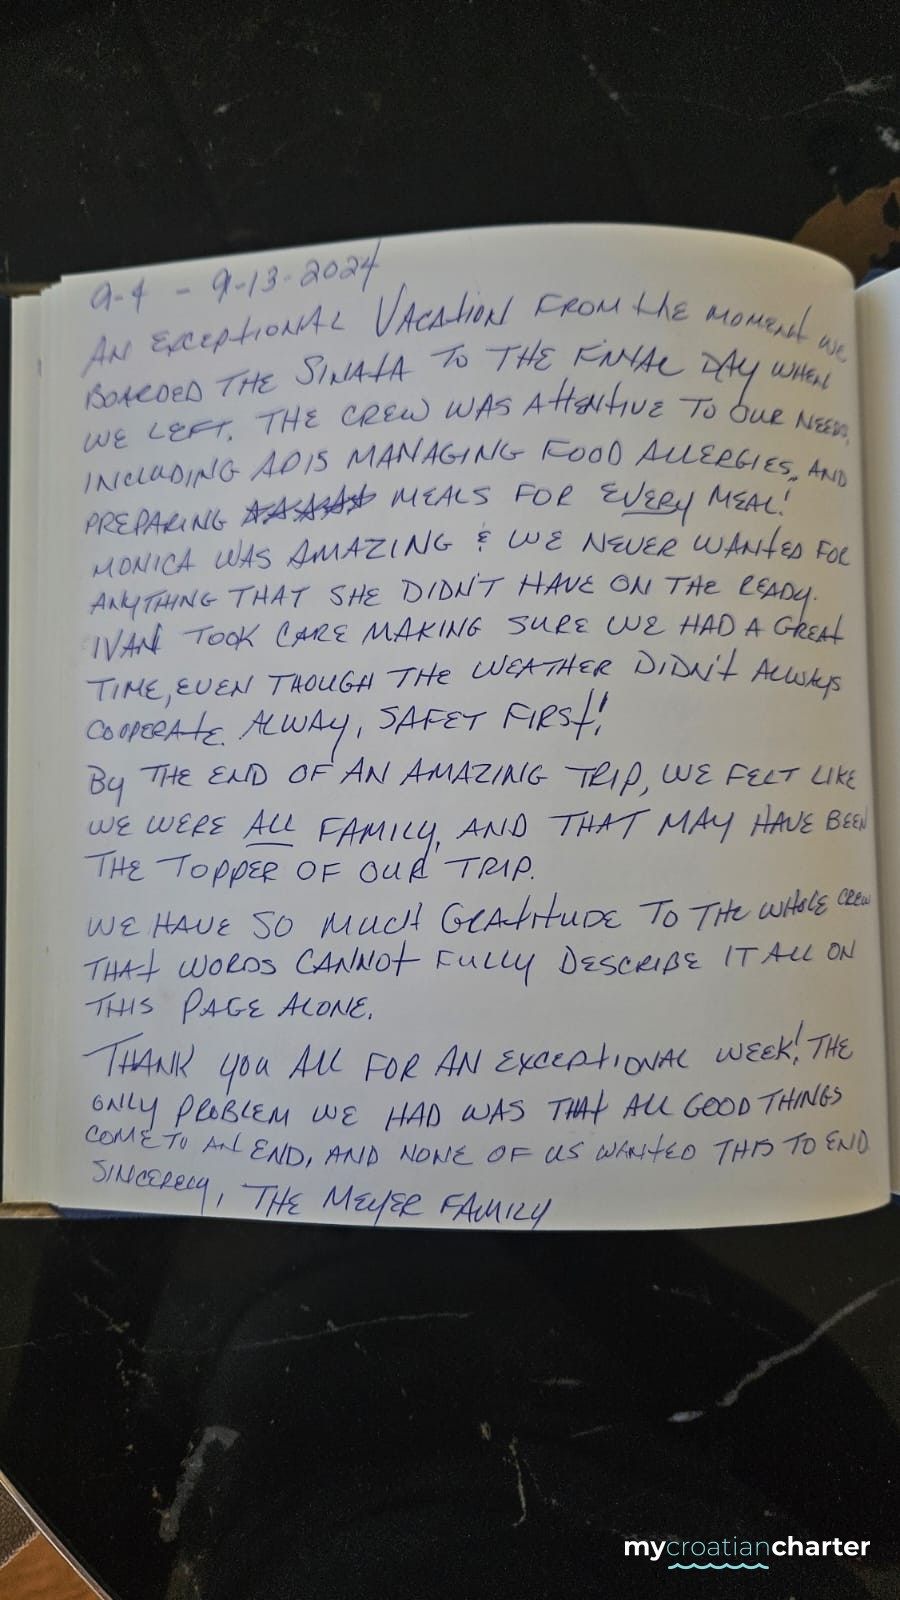 9-4 - 9-13-2024
AN EXCEPTIONAL VACATION FROM the MOMENT WE
BOARDED THE SINATA TO THE FINAL DAY WHEN
WE LEFT. THE CREW WAS AttENtIVE TO OUR NEEDS,
INCLUDING ADIS MANAGING FOOD ALLERGIES, AND
PREPARING MEALS FOR EVERY MEAL!
MONICA WAS AMAZING & WE NEVER WANtED FOR
ANYTHING THAT SHE DIDN'T HAVE ON THE READY.
IVAN TOOK CARE MAKING SURE WE HAD A GREAt
TIME, EVEN THOUGH THE WEATHER DIDN't ALWAYS
COOPERATE. ALWAY, SAFET FIRSt!
By THE END OF AN AMAZING TRIP, WE FELT LIKE
WE WERE ALL FAMILY, AND THAT MAY HAVE BEEN
THE TOPPER OF OUR TRIP.
WE HAVE SO MUCH GRATITUDE TO THE WHOLE CREW
THAt WORDS CANNOt FULLY DESCRIBE IT ALL ON
THIS PAGE ALONE.
THANK you ALL FOR AN EXCEPTIONAL WEEK! THE
ONLY PROBLEM WE HAD WAS THAt ALL GOOD THINGS
COME TO AN END, AND NONE OF US WANtED THIS TO END
SINCERELY, THE MEYER FAMILY
mycroatiancharter